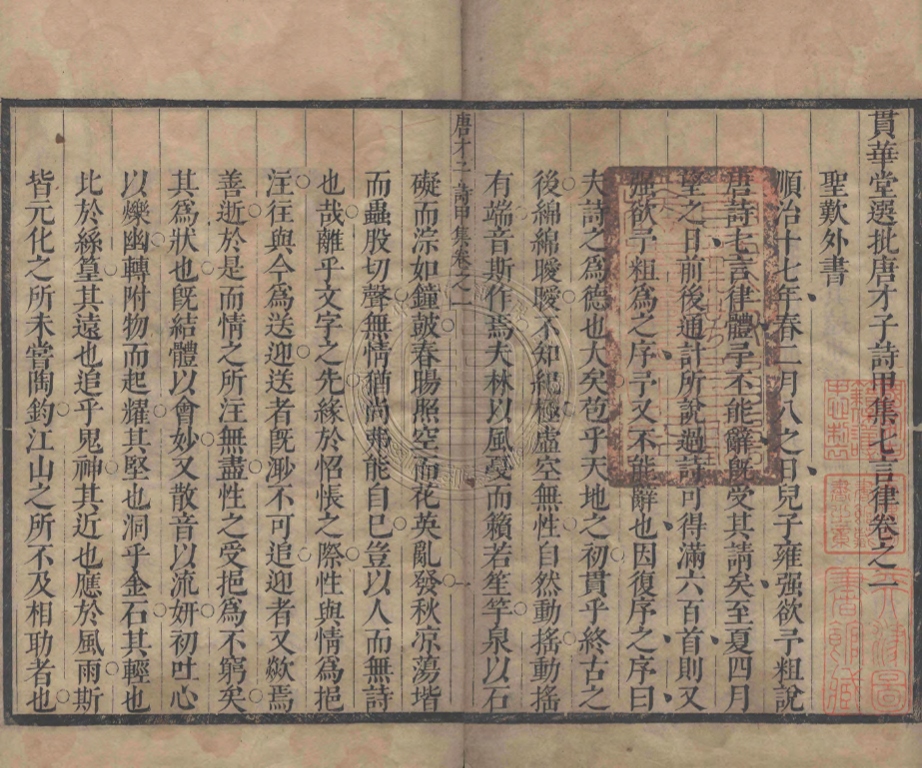 貫華堂選批唐才子詩甲集七言律卷之一
聖歎外書
順治十七年春二月八之日兒子雍强欲予粗說
唐詩七言律體予不能辭旣受其請矣至夏四月
望之日前後通計所說過詩可得滿六百首則又
强欲予粗爲之序予又不能辭也因復序之序曰
夫詩之爲德也大矣苞乎天地之初貫乎終古之
後綿綿曖曖不知紀極虛空無性自然動搖動搖
有端音斯作焉夫林以風戛而籟若笙竽泉以石
唐才子詩甲集卷之一
一
礙而淙如鐘鼓春陽照空而花英亂發秋凉蕩堦
而蟲股切聲無情猶尚弗能自已豈以人而無詩
也哉離乎文字之先緣於怊悵之際性與情爲挹
注往與今爲送迎送者旣渺不可追迎者又歘焉
善逝於是而情之所注無盡性之受挹爲不窮矣
其爲狀也旣結體以會妙又散音以流妍初吐心
以爍幽轉附物而起耀其堅也洞乎金石其輕也
比於絲篁其遠也追乎鬼神其近也應於風雨斯
皆元化之所未嘗陶鈞江山之所不及相助者也